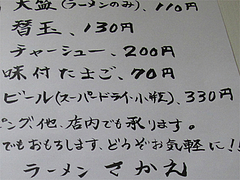 大盛(ラーメンのみ)、110円
替玉、130円
チャーシュー、200円
味付たまご、70円
ビール(スーパードライ・小瓶)、330円
ピング他、店内でも承ります。
でもおもろします、どうぞお気軽に!!
ラーメン さかえ